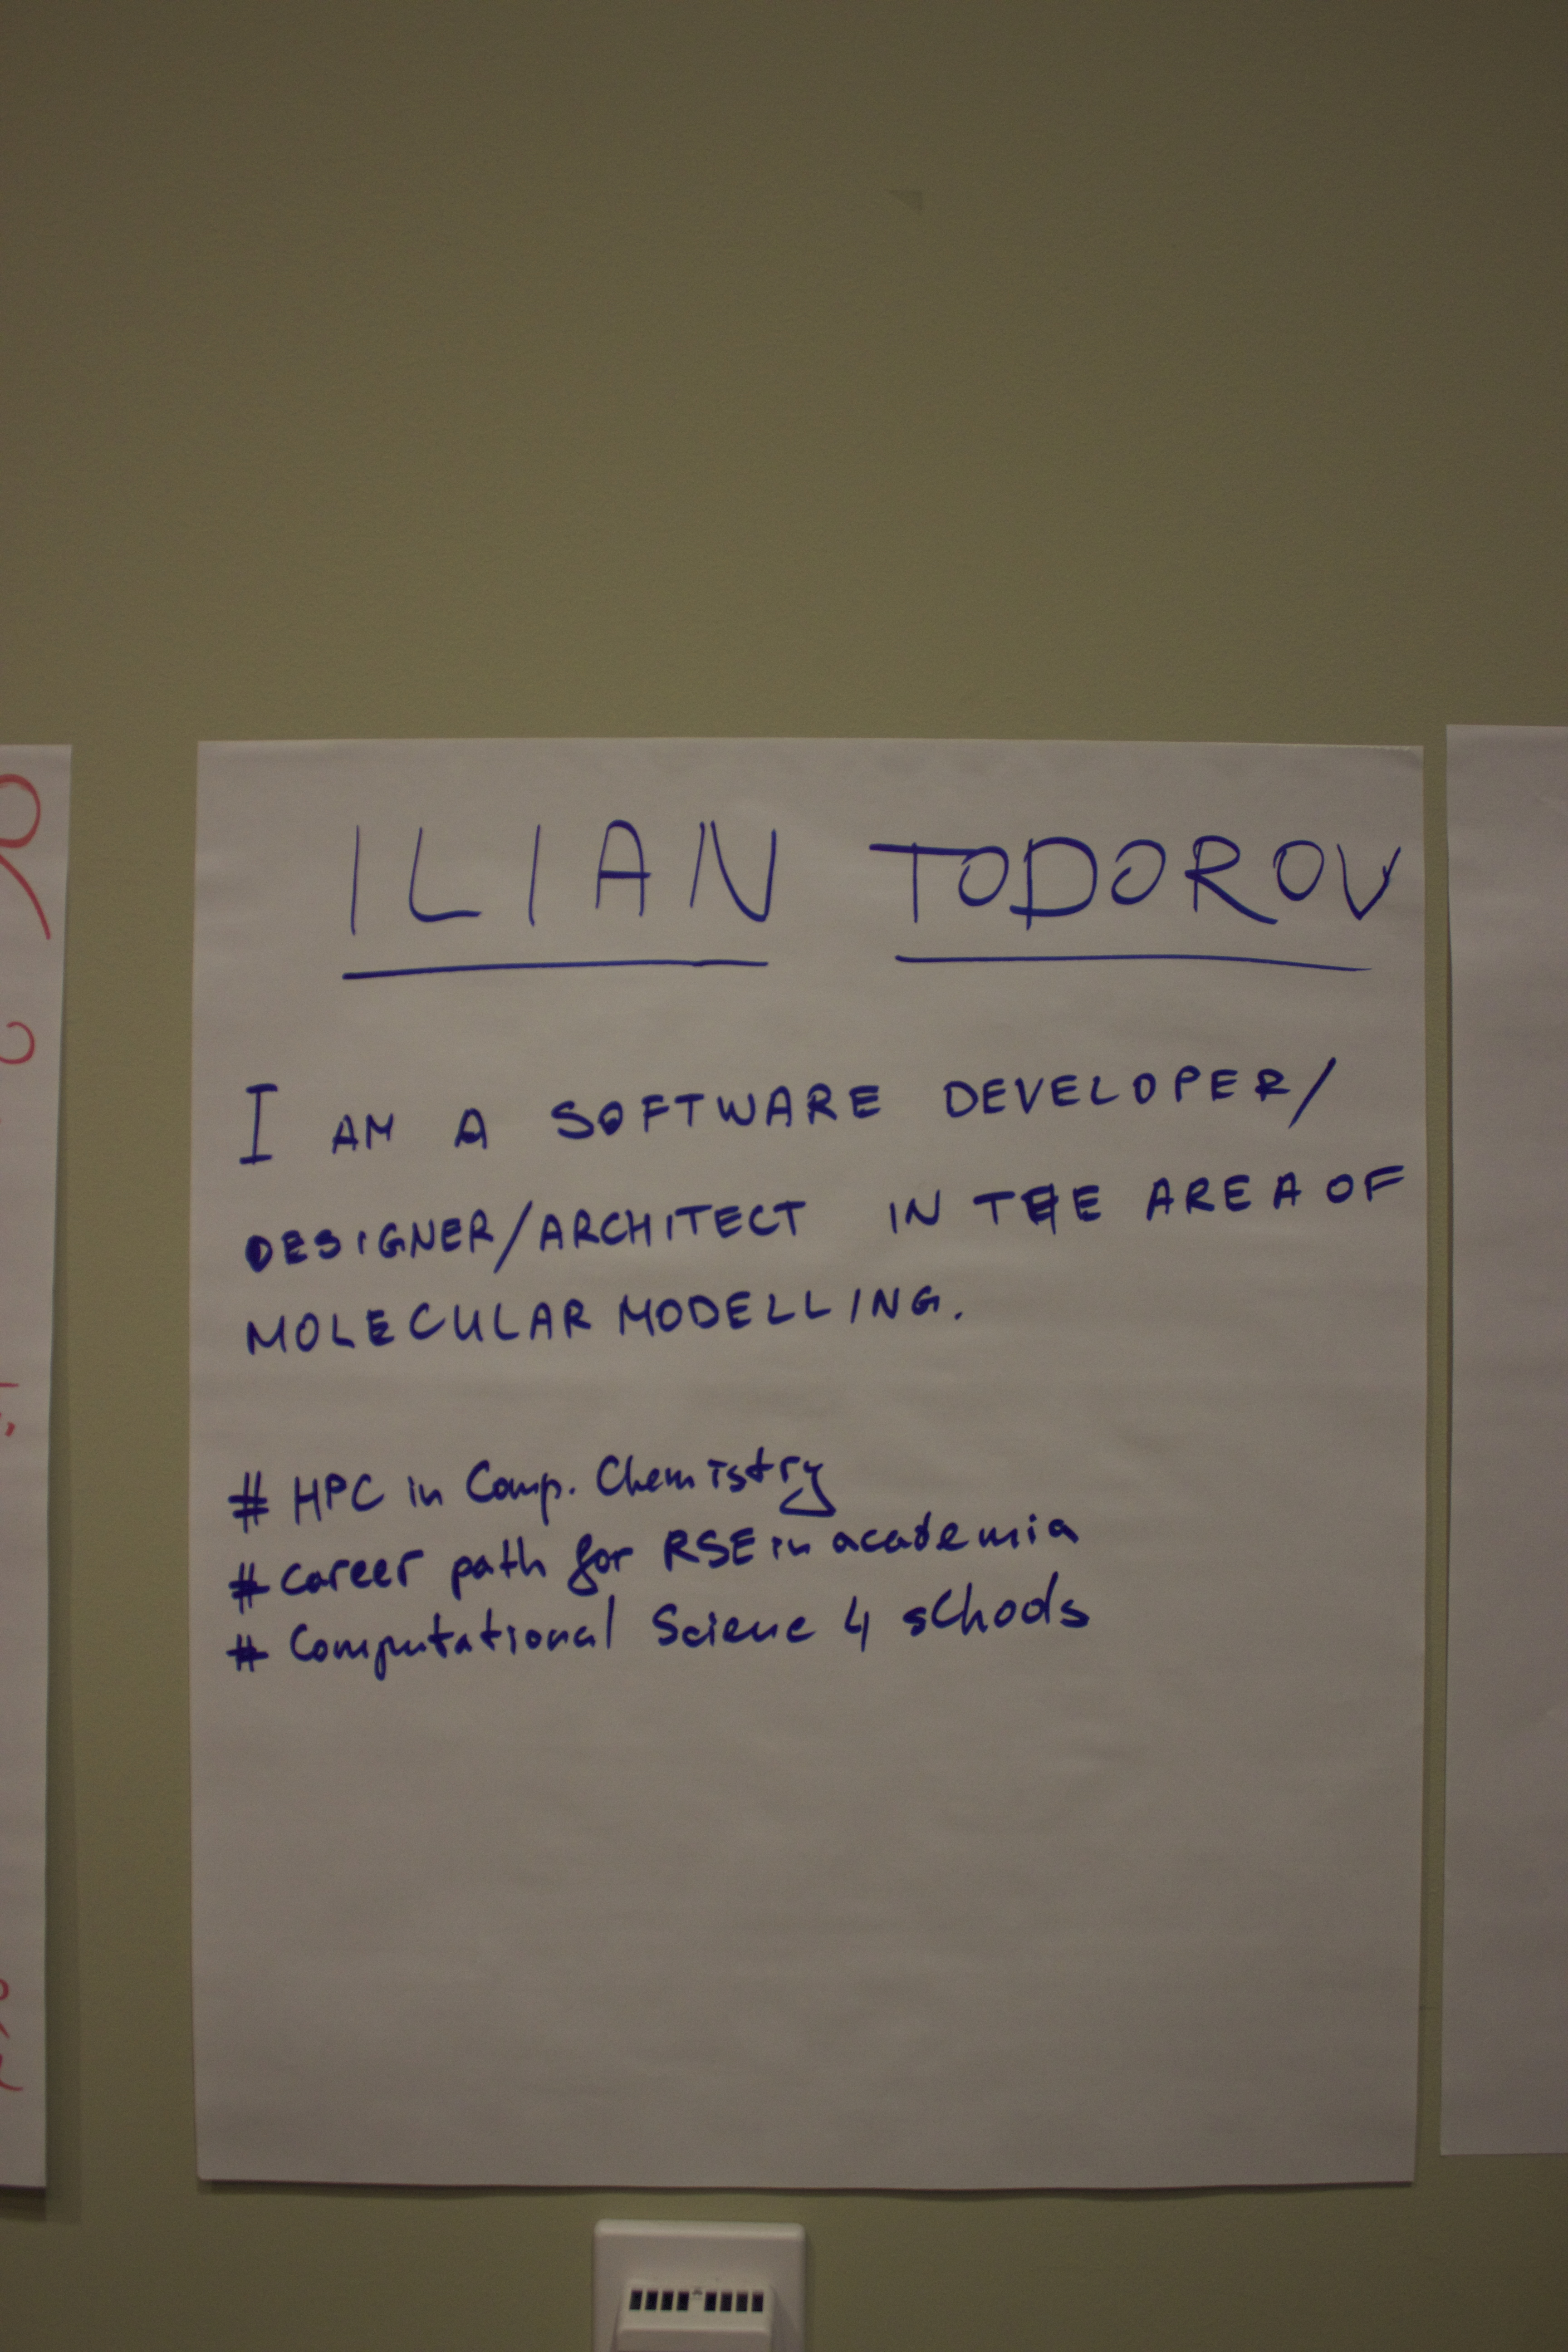 ILIAN TODOROV
I AM A SOFTWARE DEVELOPER/
DESIGNER/ARCHITECT IN THE AREA OF
MOLECULAR MODELLING.
# HPC in Comp. Chemistry
# Career path for RSE in academia
# Computational Science 4 schools